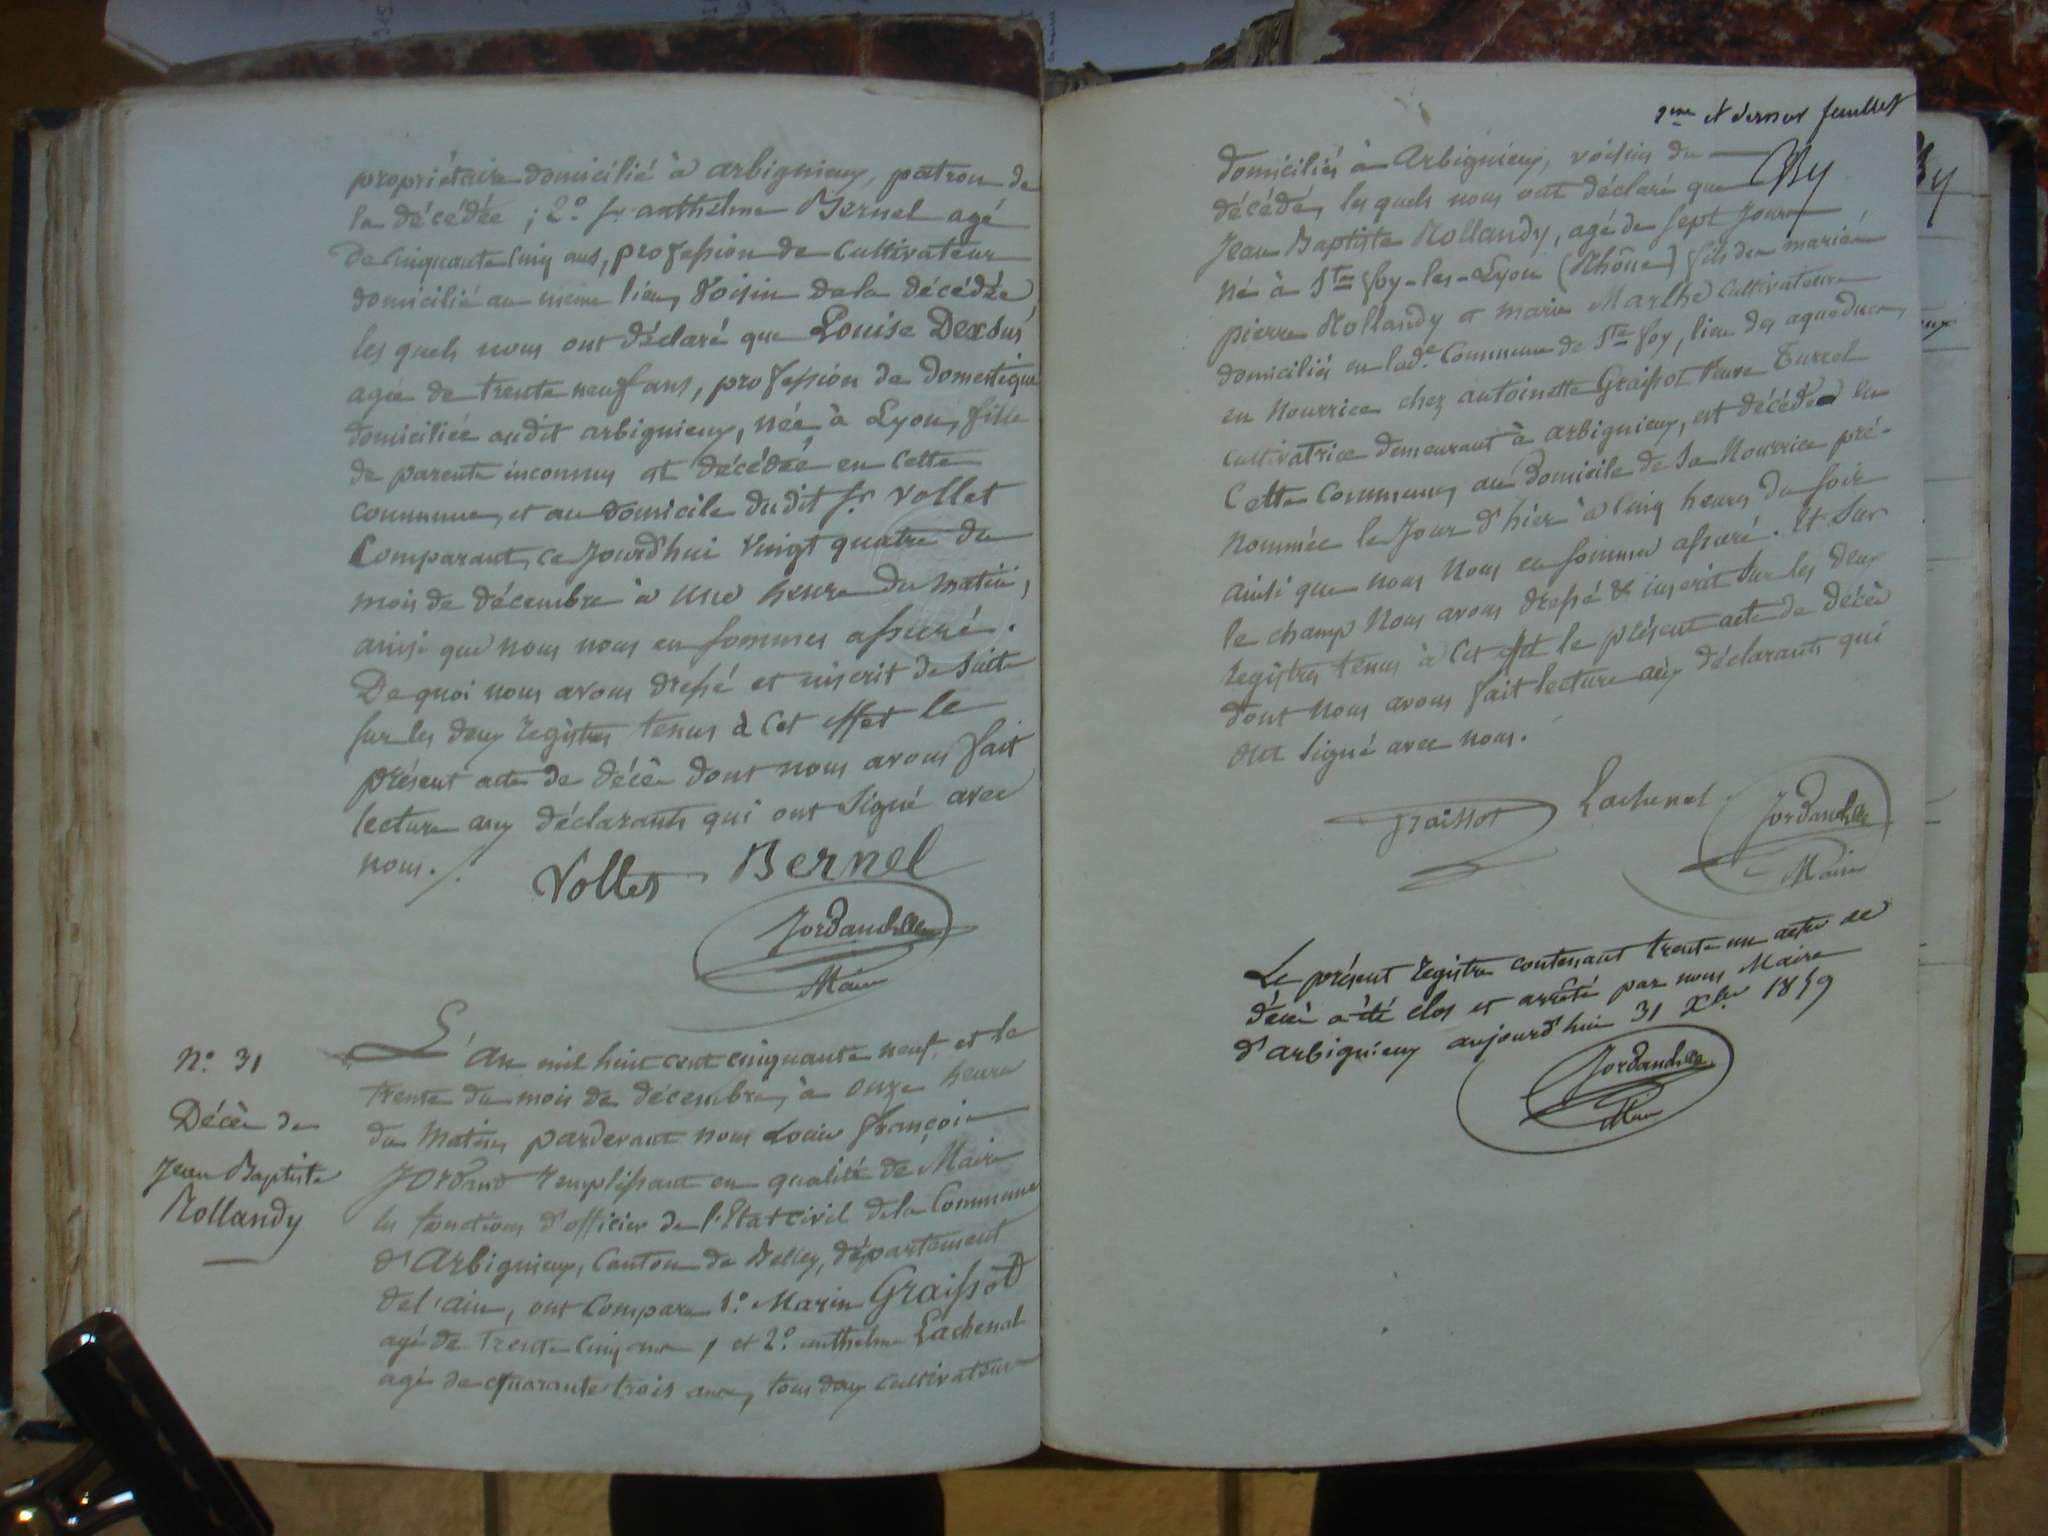 propriétaire domicilié à arbignieux, patron de
la décédée ; 2.° Sr. anthelme Bernel agé
de cinquante cinq ans, profession de cultivateur
domicilié au même lieu, voisin de la décédée
les quels nous ont déclaré que Louise Dexsus
agée de trente neuf ans, profession de domestique
domiciliée audit arbignieux, née à Lyon, fille
de parents inconnus est décédée en cette
commune, et au domicile dudit Sr. Vollet
Comparant, ce jourd'hui vingt quatre du
mois de décembre à une heure du matin,
ainsi que nous nous en sommes assuré.
De quoi nous avons dressé et inscrit de suite
sur les deux registres tenus à cet effet le
présent acte de décès dont nous avons fait
lecture aux déclarants qui ont signé avec
nous./.
Vollet Bernel
Jordand
Maire
N.° 31
Décès de
Jean Baptiste
Rollandy
L'an mil huit cent cinquante neuf, et le
trente du mois de décembre, à onze heures
du matin, pardevant nous Louis François
Jordand remplissant en qualité de Maire
les fonctions d'officier de l'Etat civil de la Commune
d'Arbignieux, Canton de Belley, département
de l'ain, ont comparu 1.° Marin Graissot
agé de trente cinq ans, et 2.° anthelme Lachenal
agé de quarante trois ans, tous deux cultivateurs
9eme et dernier feuillet
domiciliés à Arbignieux, voisins du
décédé, les quels nous ont déclaré que
Jean Baptiste Rollandy, agé de sept jours
né à Ste foy-les-Lyon (Rhône) fils des mariés
pierre Rollandy et marie Marthe cultivateurs
domiciliés en lade. Commune de Ste foy, lieu des aqueducs,
en nourrice chez antoinette Graissot veuve Turrel
cultivatrice demeurant à arbignieux, est décédé en
Cette Commune, au domicile de sa nourrice pré-
nommée le jour d'hier à cinq heures du soir
ainsi que nous nous en sommes assuré. Et sur
le champ nous avons dressé & inscrit sur les deux
registres tenus à cet effet le présent acte de décès
dont nous avons fait lecture aux déclarants qui
ont signé avec nous.
Graissot Lachenal Jordand
Maire
Le présent registre contenant trente un actes de
décès a été clos et arrêté par nous Maire
d'arbignieux aujourd'hui 31 Xbre 1859
Jordand
Maire